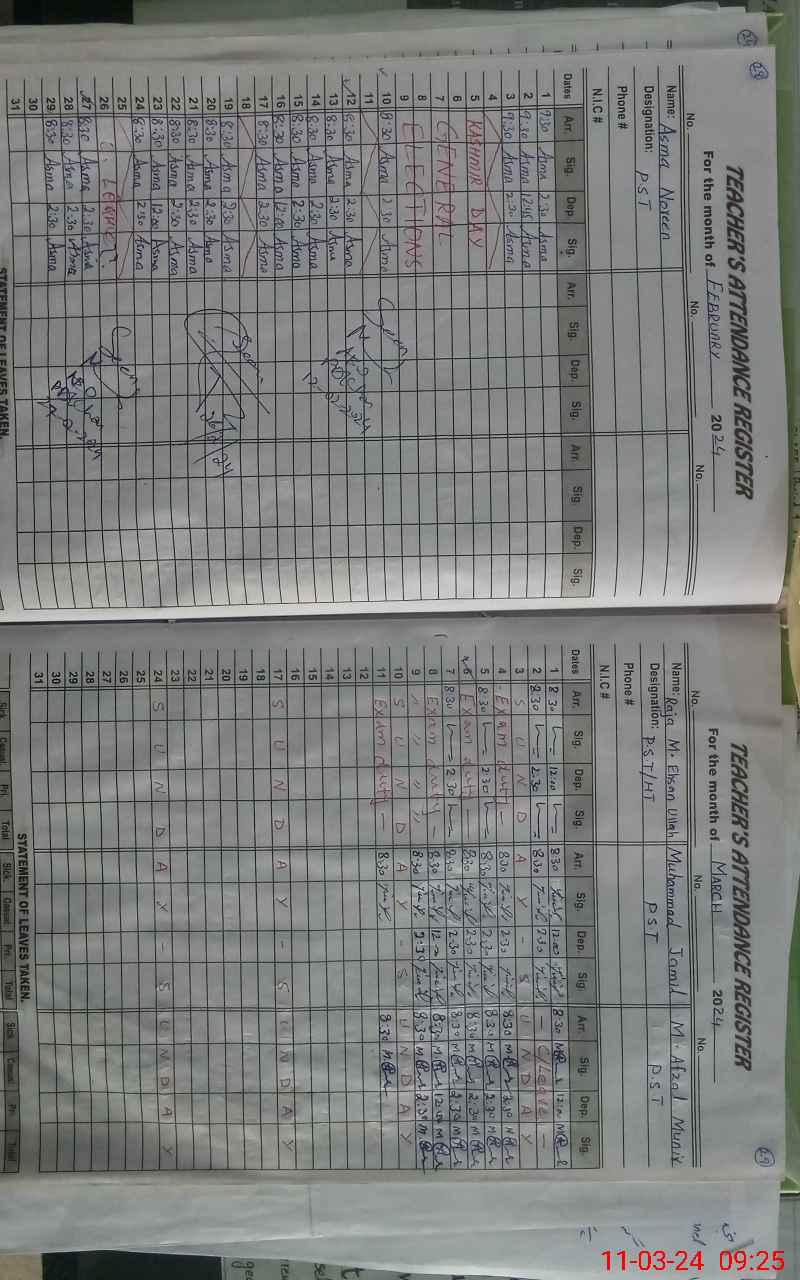 28
TEACHER'S ATTENDANCE REGISTER
For the month of FEBRUARY 2024
No. No. No.
Name: Asma Noreen
Designation: PST
Phone #
N.I.C #
Dates Arr. Sig. Dep. Sig. Arr. Sig. Dep. Sig. Arr. Sig. Dep. Sig.
1 9:30 Asma 2:30 Asma
2 9:30 Asma 12:45 Asma
3 9:30 Asma 2:30 Asma
4
5 KASHMIR DAY
6
7 GENERAL
8
9 ELECTIONS
10 8:30 Asma 2:30 Asma
11
12 8:30 Asma 2:30 Asma
13 8:30 Asma 2:30 Asma
14 8:30 Asma 2:30 Asma
15 8:30 Asma 2:30 Asma
16 8:30 Asma 12:00 Asma
17 8:30 Asma 2:30 Asma
18
19 8:30 Asma 2:30 Asma
20 8:30 Asma 2:30 Asma
21 8:30 Asma 2:30 Asma
22 8:30 Asma 2:30 Asma
23 8:30 Asma 12:00 Asma
24 8:30 Asma 2:30 Asma
25
26 C. Leave
27 8:30 Asma 2:30 Asma
28 8:30 Asma 2:30 Asma
29 8:30 Asma 2:30 Asma
30
31
STATEMENT OF LEAVES TAKEN.
29
TEACHER'S ATTENDANCE REGISTER
For the month of MARCH 2024
No. No. No.
Name: Raja M. Ehsan Ullah Muhammad Jamil M. Afzal Munir
Designation: P.S.T/HT PST PST
Phone #
N.I.C #
Dates Arr. Sig. Dep. Sig. Arr. Sig. Dep. Sig. Arr. Sig. Dep. Sig.
1 8:30 12:00 8:30 12:00 8:30 12:00
2 8:30 2:30 8:30 2:30 – C/Leave –
3 S U N D A Y - S U N D A Y
4 - Exam duty - 8:30 2:30 8:30 2:30
5 8:30 2:30 8:30 2:30 8:30 2:30
6 Exam duty - 8:30 2:30 8:30 2:30
7 8:30 2:30 8:30 2:30 8:30 2:30
8 Exam duty - 8:30 12:00 8:30 12:00
9 " " " 8:30 2:30 8:30 2:30
10 S U N D A Y - S U N D A Y
11 Exam duty - 8:30 8:30
12
13
14
15
16
17 S U N D A Y - S U N D A Y
18
19
20
21
22
23
24 S U N D A Y - S U N D A Y
25
26
27
28
29
30
31
STATEMENT OF LEAVES TAKEN.
Sick Casual Pri. Total Sick Casual Pri. Total Sick Casual Pri. Total
11-03-24 09:25